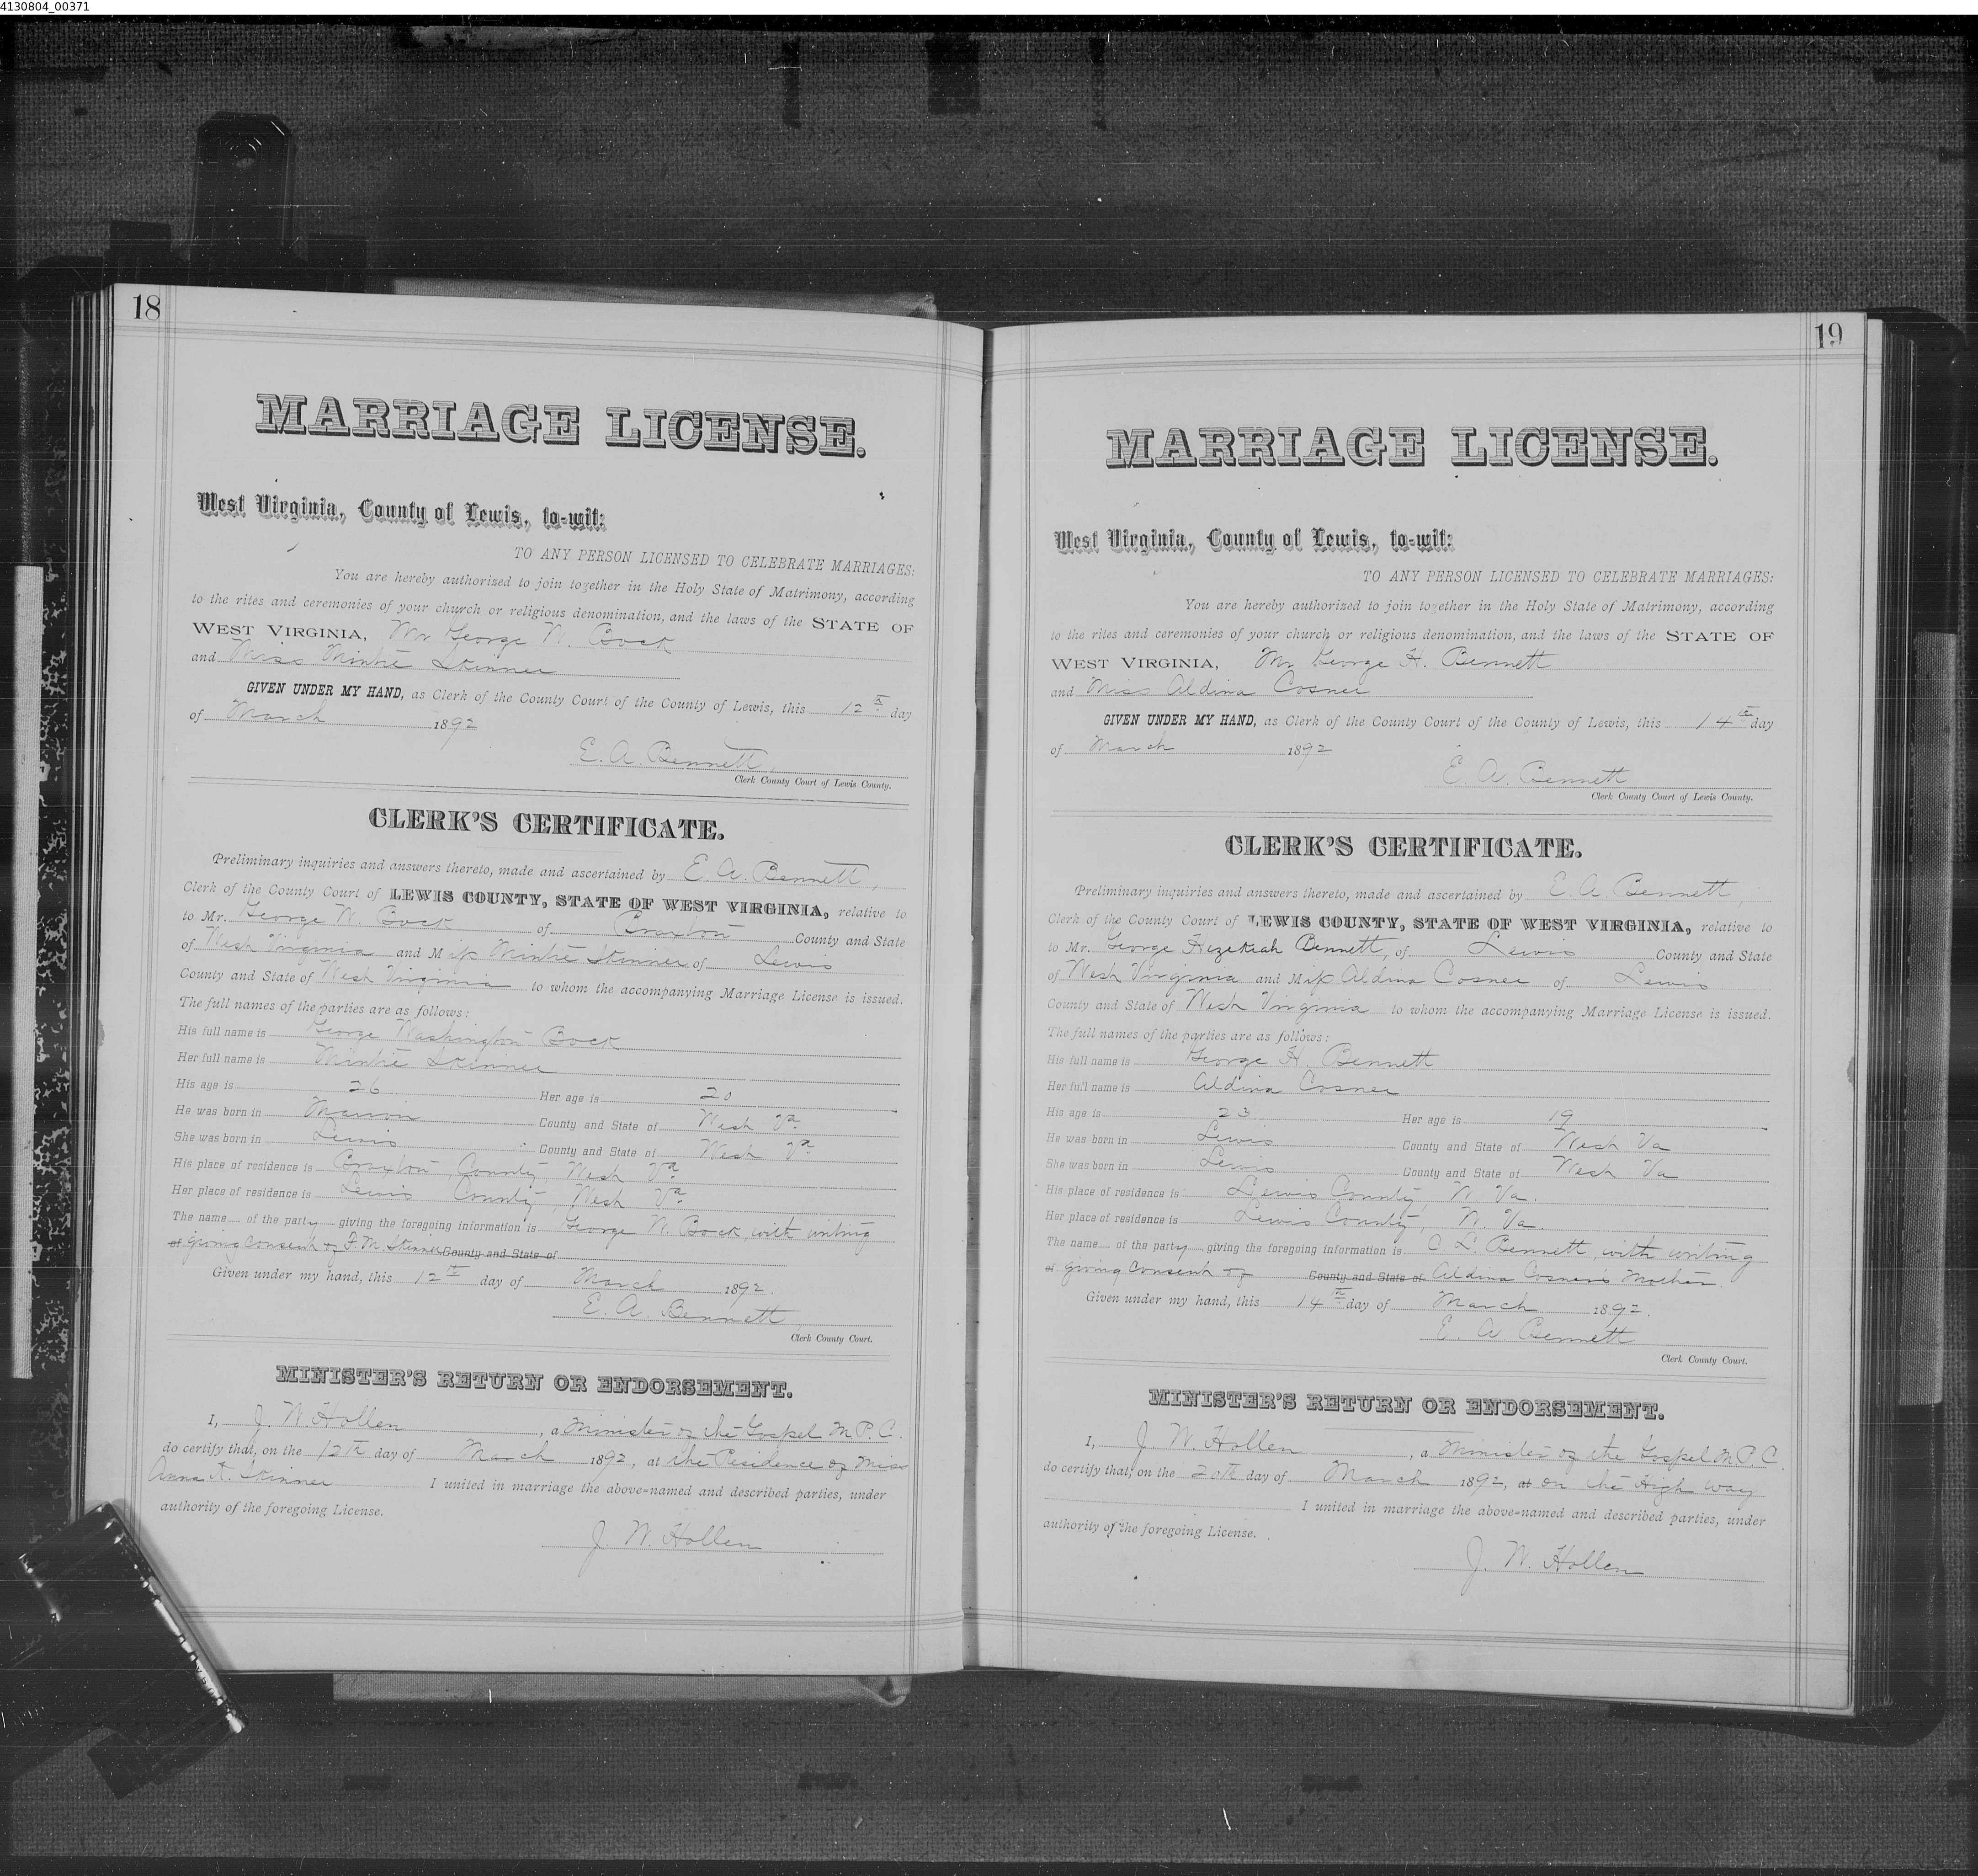 4130804_00371
18
MARRIAGE LICENSE.
West Virginia, County of Lewis, to-wit:
TO ANY PERSON LICENSED TO CELEBRATE MARRIAGES:
You are hereby authorized to join together in the Holy State of Matrimony, according
to the rites and ceremonies of your church or religious denomination, and the laws of the STATE OF
WEST VIRGINIA, Mr George W. Bock
and Miss Mintie Skinner
GIVEN UNDER MY HAND, as Clerk of the County Court of the County of Lewis, this 12th day
of March 1892
E. A. Bennett,
Clerk County Court of Lewis County.
CLERK'S CERTIFICATE.
Preliminary inquiries and answers thereto, made and ascertained by E. A. Bennett,
Clerk of the County Court of LEWIS COUNTY, STATE OF WEST VIRGINIA, relative to
to Mr. George W. Bock of Braxton County and State
of West Virginia and Miss Mintie Skinner of Lewis
County and State of West Virginia to whom the accompanying Marriage License is issued.
The full names of the parties are as follows:
His full name is George Washington Bock
Her full name is Mintie Skinner
His age is 26 Her age is 20
He was born in Marion County and State of West Va
She was born in Lewis County and State of West Va
His place of residence is Braxton County, West Va
Her place of residence is Lewis County, West Va
The name of the party giving the foregoing information is George W. Bock, with writing
of giving consent of F. M. Skinner County and State of
Given under my hand, this 12th day of March 1892.
E. A. Bennett
Clerk County Court.
MINISTER'S RETURN OR ENDORSEMENT.
I, J. W. Hollen, a Minister of the Gospel M. P. C.
do certify that, on the 12th day of March 1892, at the Residence of Miss
Anna A. Skinner I united in marriage the above-named and described parties, under
authority of the foregoing License.
J. W. Hollen
19
MARRIAGE LICENSE.
West Virginia, County of Lewis, to-wit:
TO ANY PERSON LICENSED TO CELEBRATE MARRIAGES:
You are hereby authorized to join together in the Holy State of Matrimony, according
to the rites and ceremonies of your church or religious denomination, and the laws of the STATE OF
WEST VIRGINIA, Mr George H. Bennett
and Miss Aldina Cosner
GIVEN UNDER MY HAND, as Clerk of the County Court of the County of Lewis, this 14th day
of March 1892
E. A. Bennett
Clerk County Court of Lewis County.
CLERK'S CERTIFICATE.
Preliminary inquiries and answers thereto, made and ascertained by E. A. Bennett,
Clerk of the County Court of LEWIS COUNTY, STATE OF WEST VIRGINIA, relative to
to Mr. George Hezekiah Bennett, of Lewis County and State
of West Virginia and Miss Aldina Cosner of Lewis
County and State of West Virginia to whom the accompanying Marriage License is issued.
The full names of the parties are as follows:
His full name is George H. Bennett
Her full name is Aldina Cosner
His age is 23 Her age is 19
He was born in Lewis County and State of West Va
She was born in Lewis County and State of West Va
His place of residence is Lewis County, W. Va.
Her place of residence is Lewis County, W. Va.
The name of the party giving the foregoing information is C L. Bennett, with writing
of giving consent of County and State of Aldina Cosner's Mother.
Given under my hand, this 14th day of March 1892.
E. A Bennett
Clerk County Court.
MINISTER'S RETURN OR ENDORSEMENT.
I, J. W. Hollen, a Minister of the Gospel M. P. C.
do certify that, on the 20th day of March 1892, at on the High way
I united in marriage the above-named and described parties, under
authority of the foregoing License.
J. W. Hollen